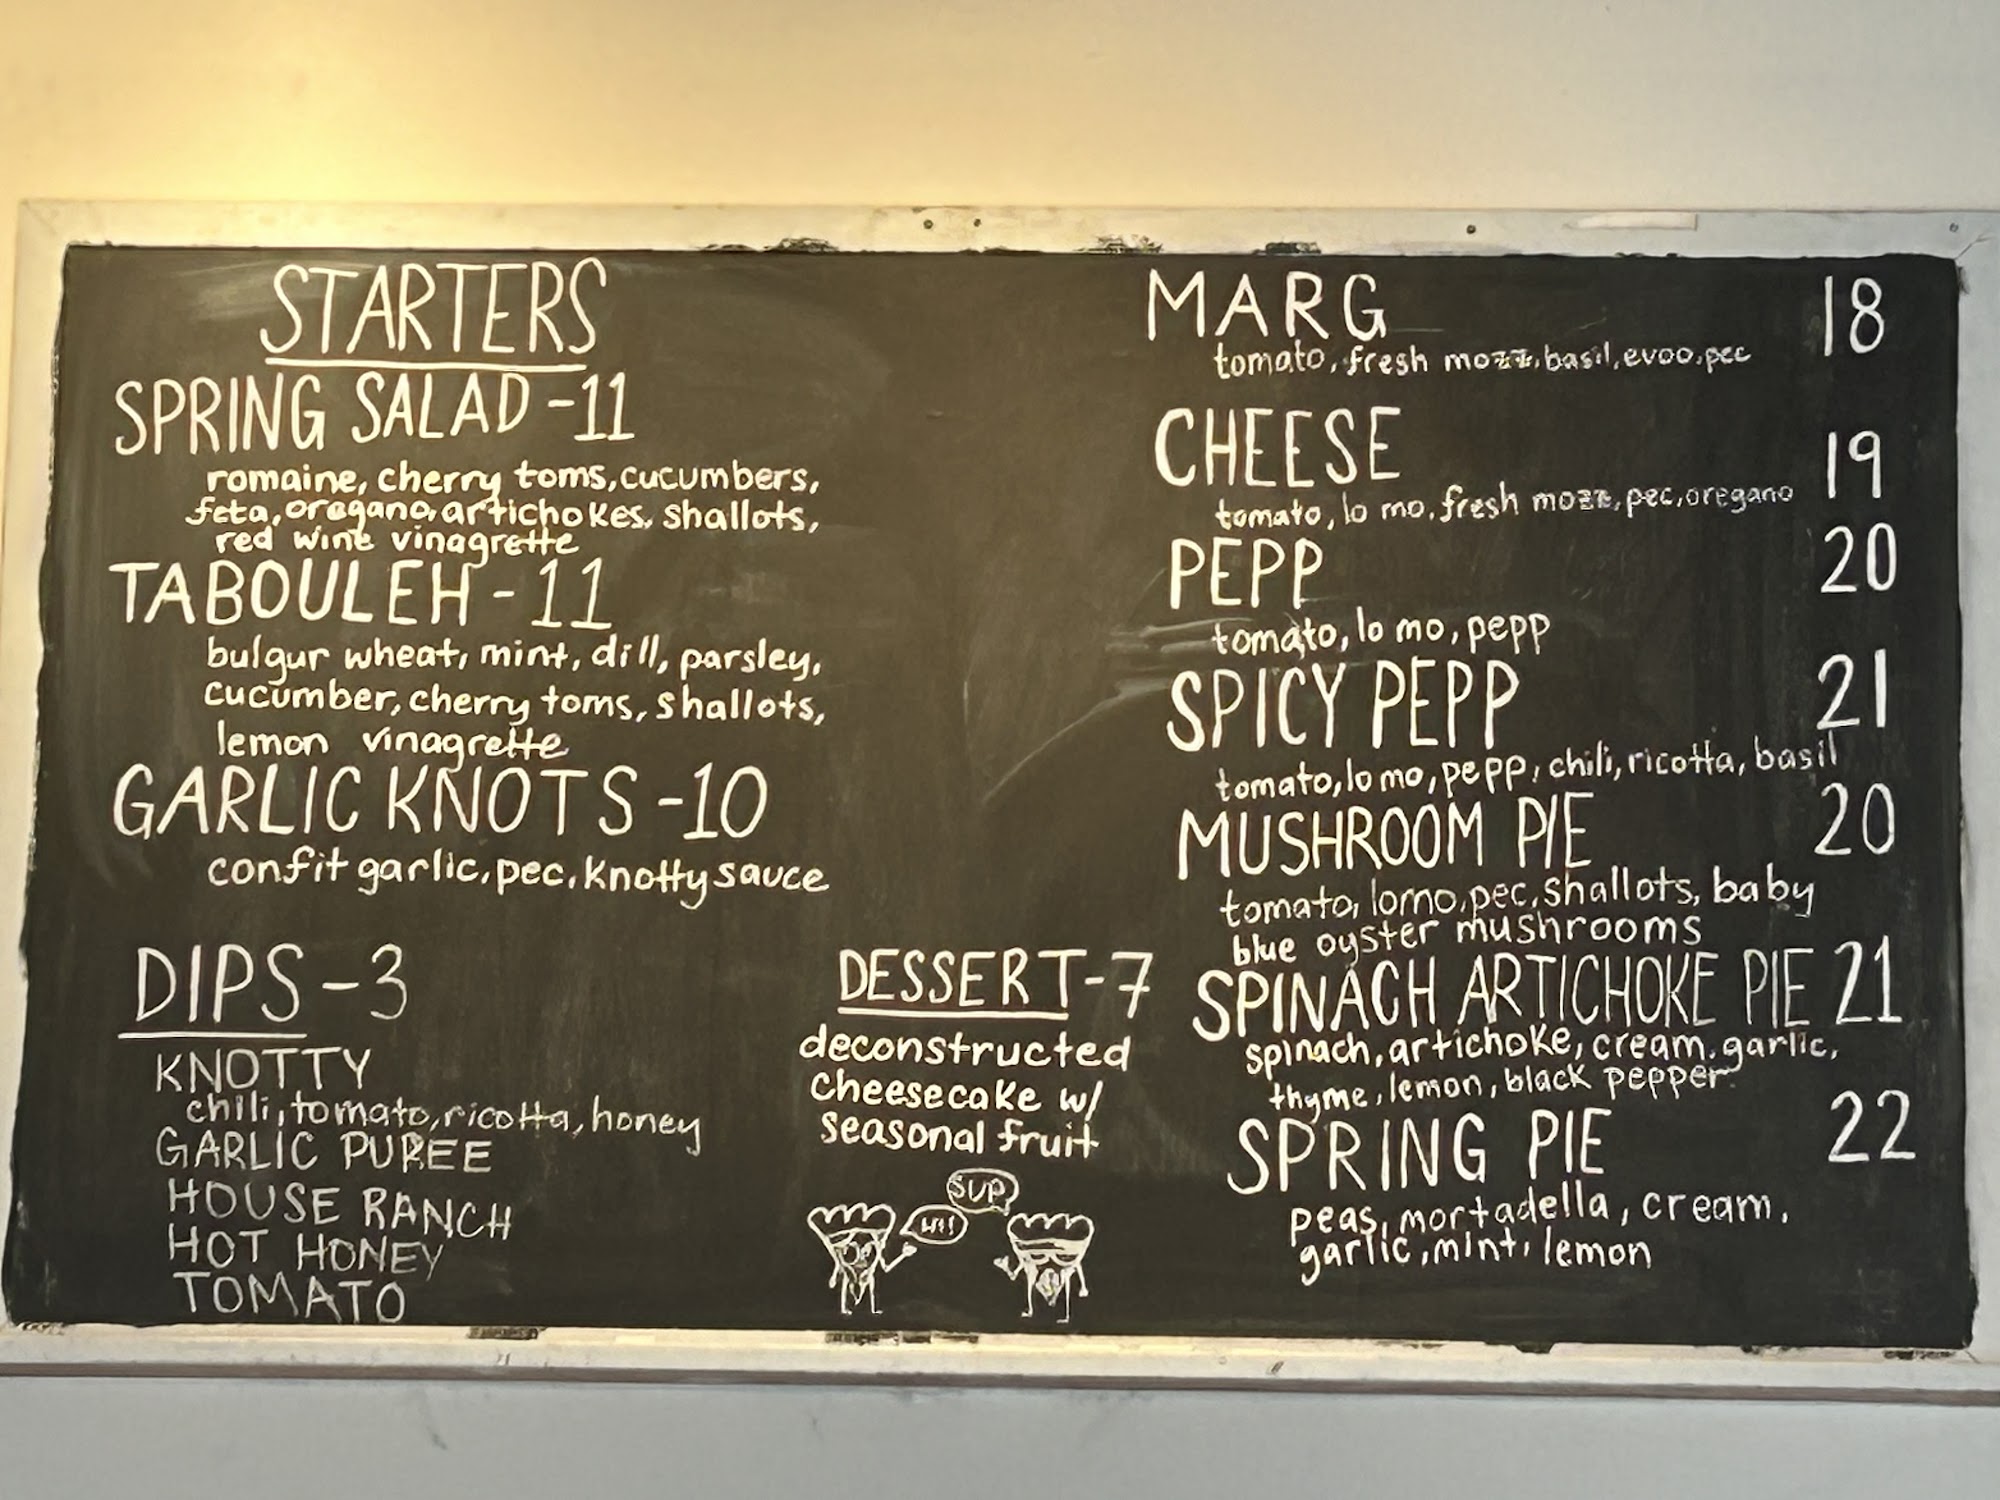 STARTERS
SPRING SALAD -11
romaine, cherry toms, cucumbers,
feta, oregano, artichokes, shallots,
red wine vinagrette
TABOULEH - 11
bulgur wheat, mint, dill, parsley,
cucumber, cherry toms, shallots,
lemon vinagrette
GARLIC KNOTS -10
confit garlic, pec, knotty sauce
DIPS - 3
KNOTTY
chili, tomato, ricotta, honey
GARLIC PUREE
HOUSE RANCH
HOT HONEY
TOMATO
DESSERT-7
deconstructed
cheesecake w/
seasonal fruit
SUP
HI!
MARG 18
tomato, fresh mozz, basil, evoo, pec
CHEESE 19
tomato, lo mo, fresh mozz, pec, oregano
PEPP 20
tomato, lo mo, pepp
SPICY PEPP 21
tomato, lo mo, pepp, chili, ricotta, basil
MUSHROOM PIE 20
tomato, lo mo, pec, shallots, baby
blue oyster mushrooms
SPINACH ARTICHOKE PIE 21
spinach, artichoke, cream, garlic,
thyme, lemon, black pepper
SPRING PIE 22
peas, mortadella, cream,
garlic, mint, lemon